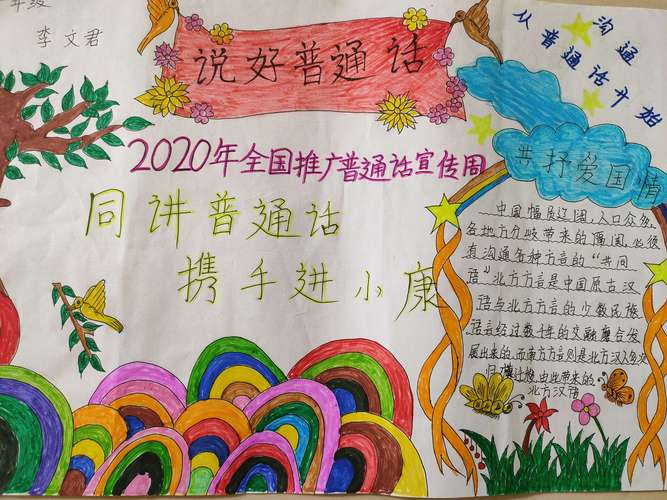 年级
李文君
说好普通话
沟通
从普通话开始
2020年全国推广普通话宣传周
同讲普通话
携手进小康
共抒爱国情
中国幅员辽阔,人口众多,
各地方分歧带来的隔阂,必须
有沟通各种方言的“共同
语”北方方言是中国原古汉
语与北方方言的少数民族
语言经过数千年的交融磨合发
展出来的,而南方方言则是北方汉人多次
归 迁移,由此带来的
北方汉语